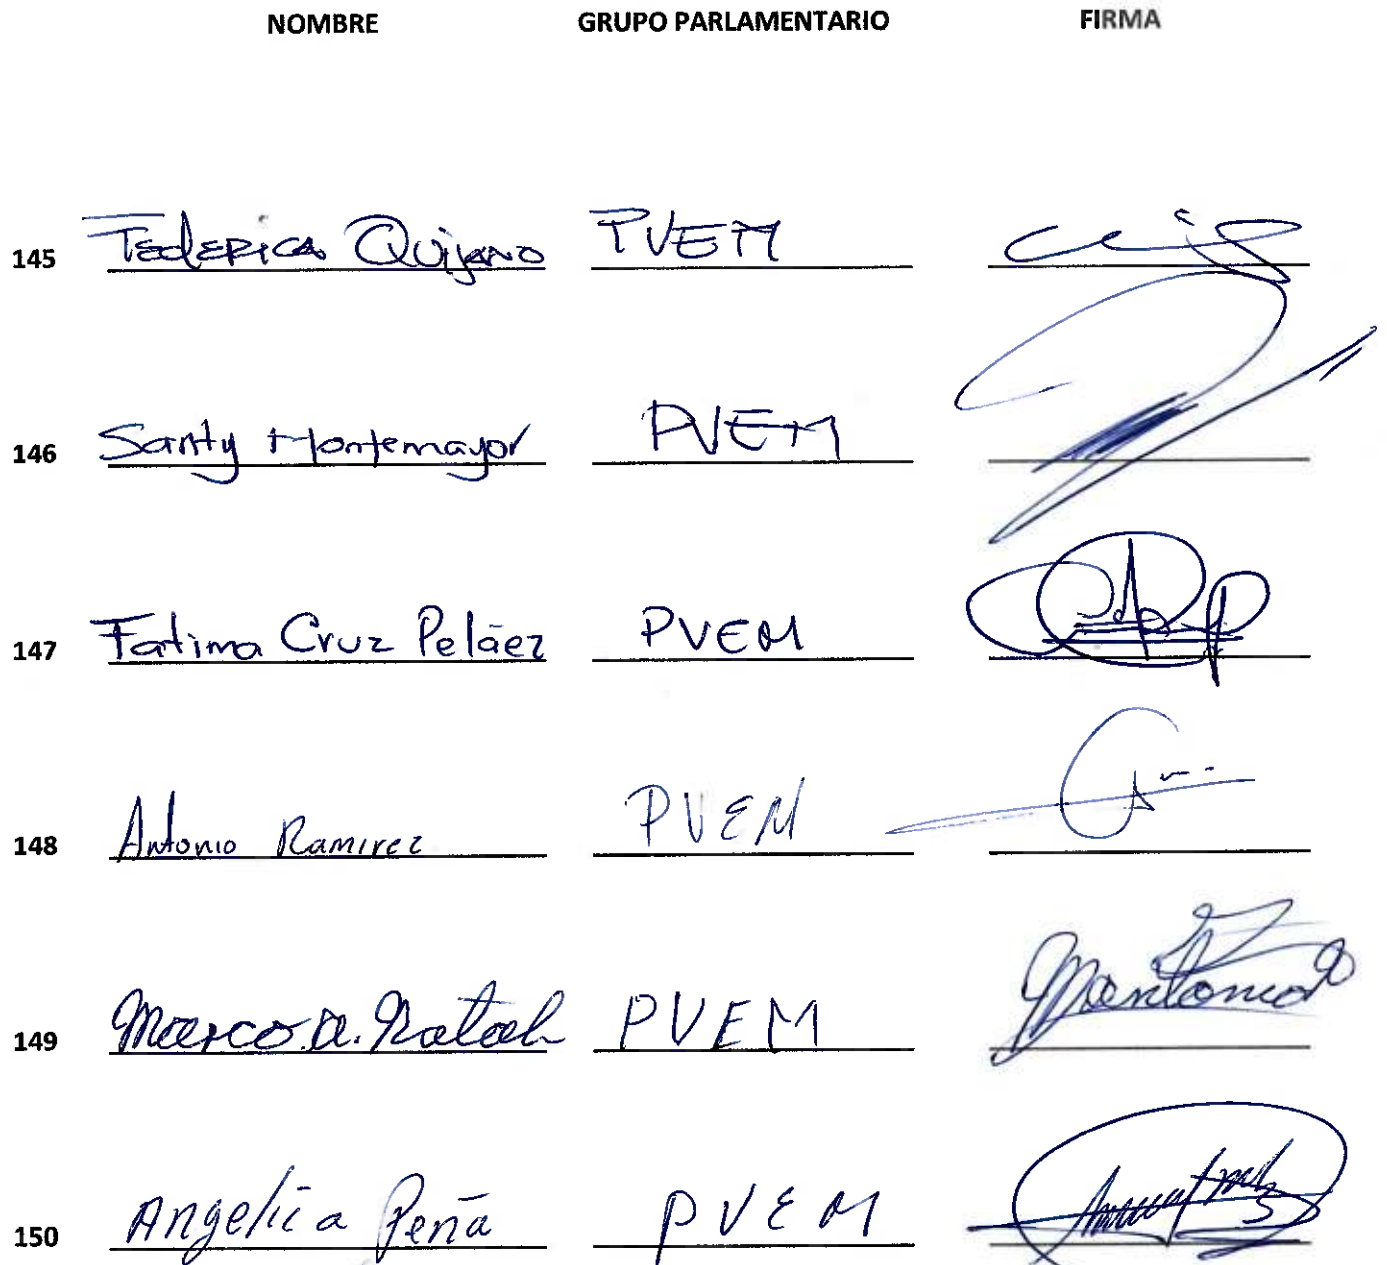 NOMBRE GRUPO PARLAMENTARIO FIRMA
145 Federica Quijano PVEM
146 Santy Montemayor PVEM
147 Fatima Cruz Peláez PVEM
148 Antonio Ramirez PVEM
149 Marco A. Natale PVEM
150 Angelica Peña PVEM